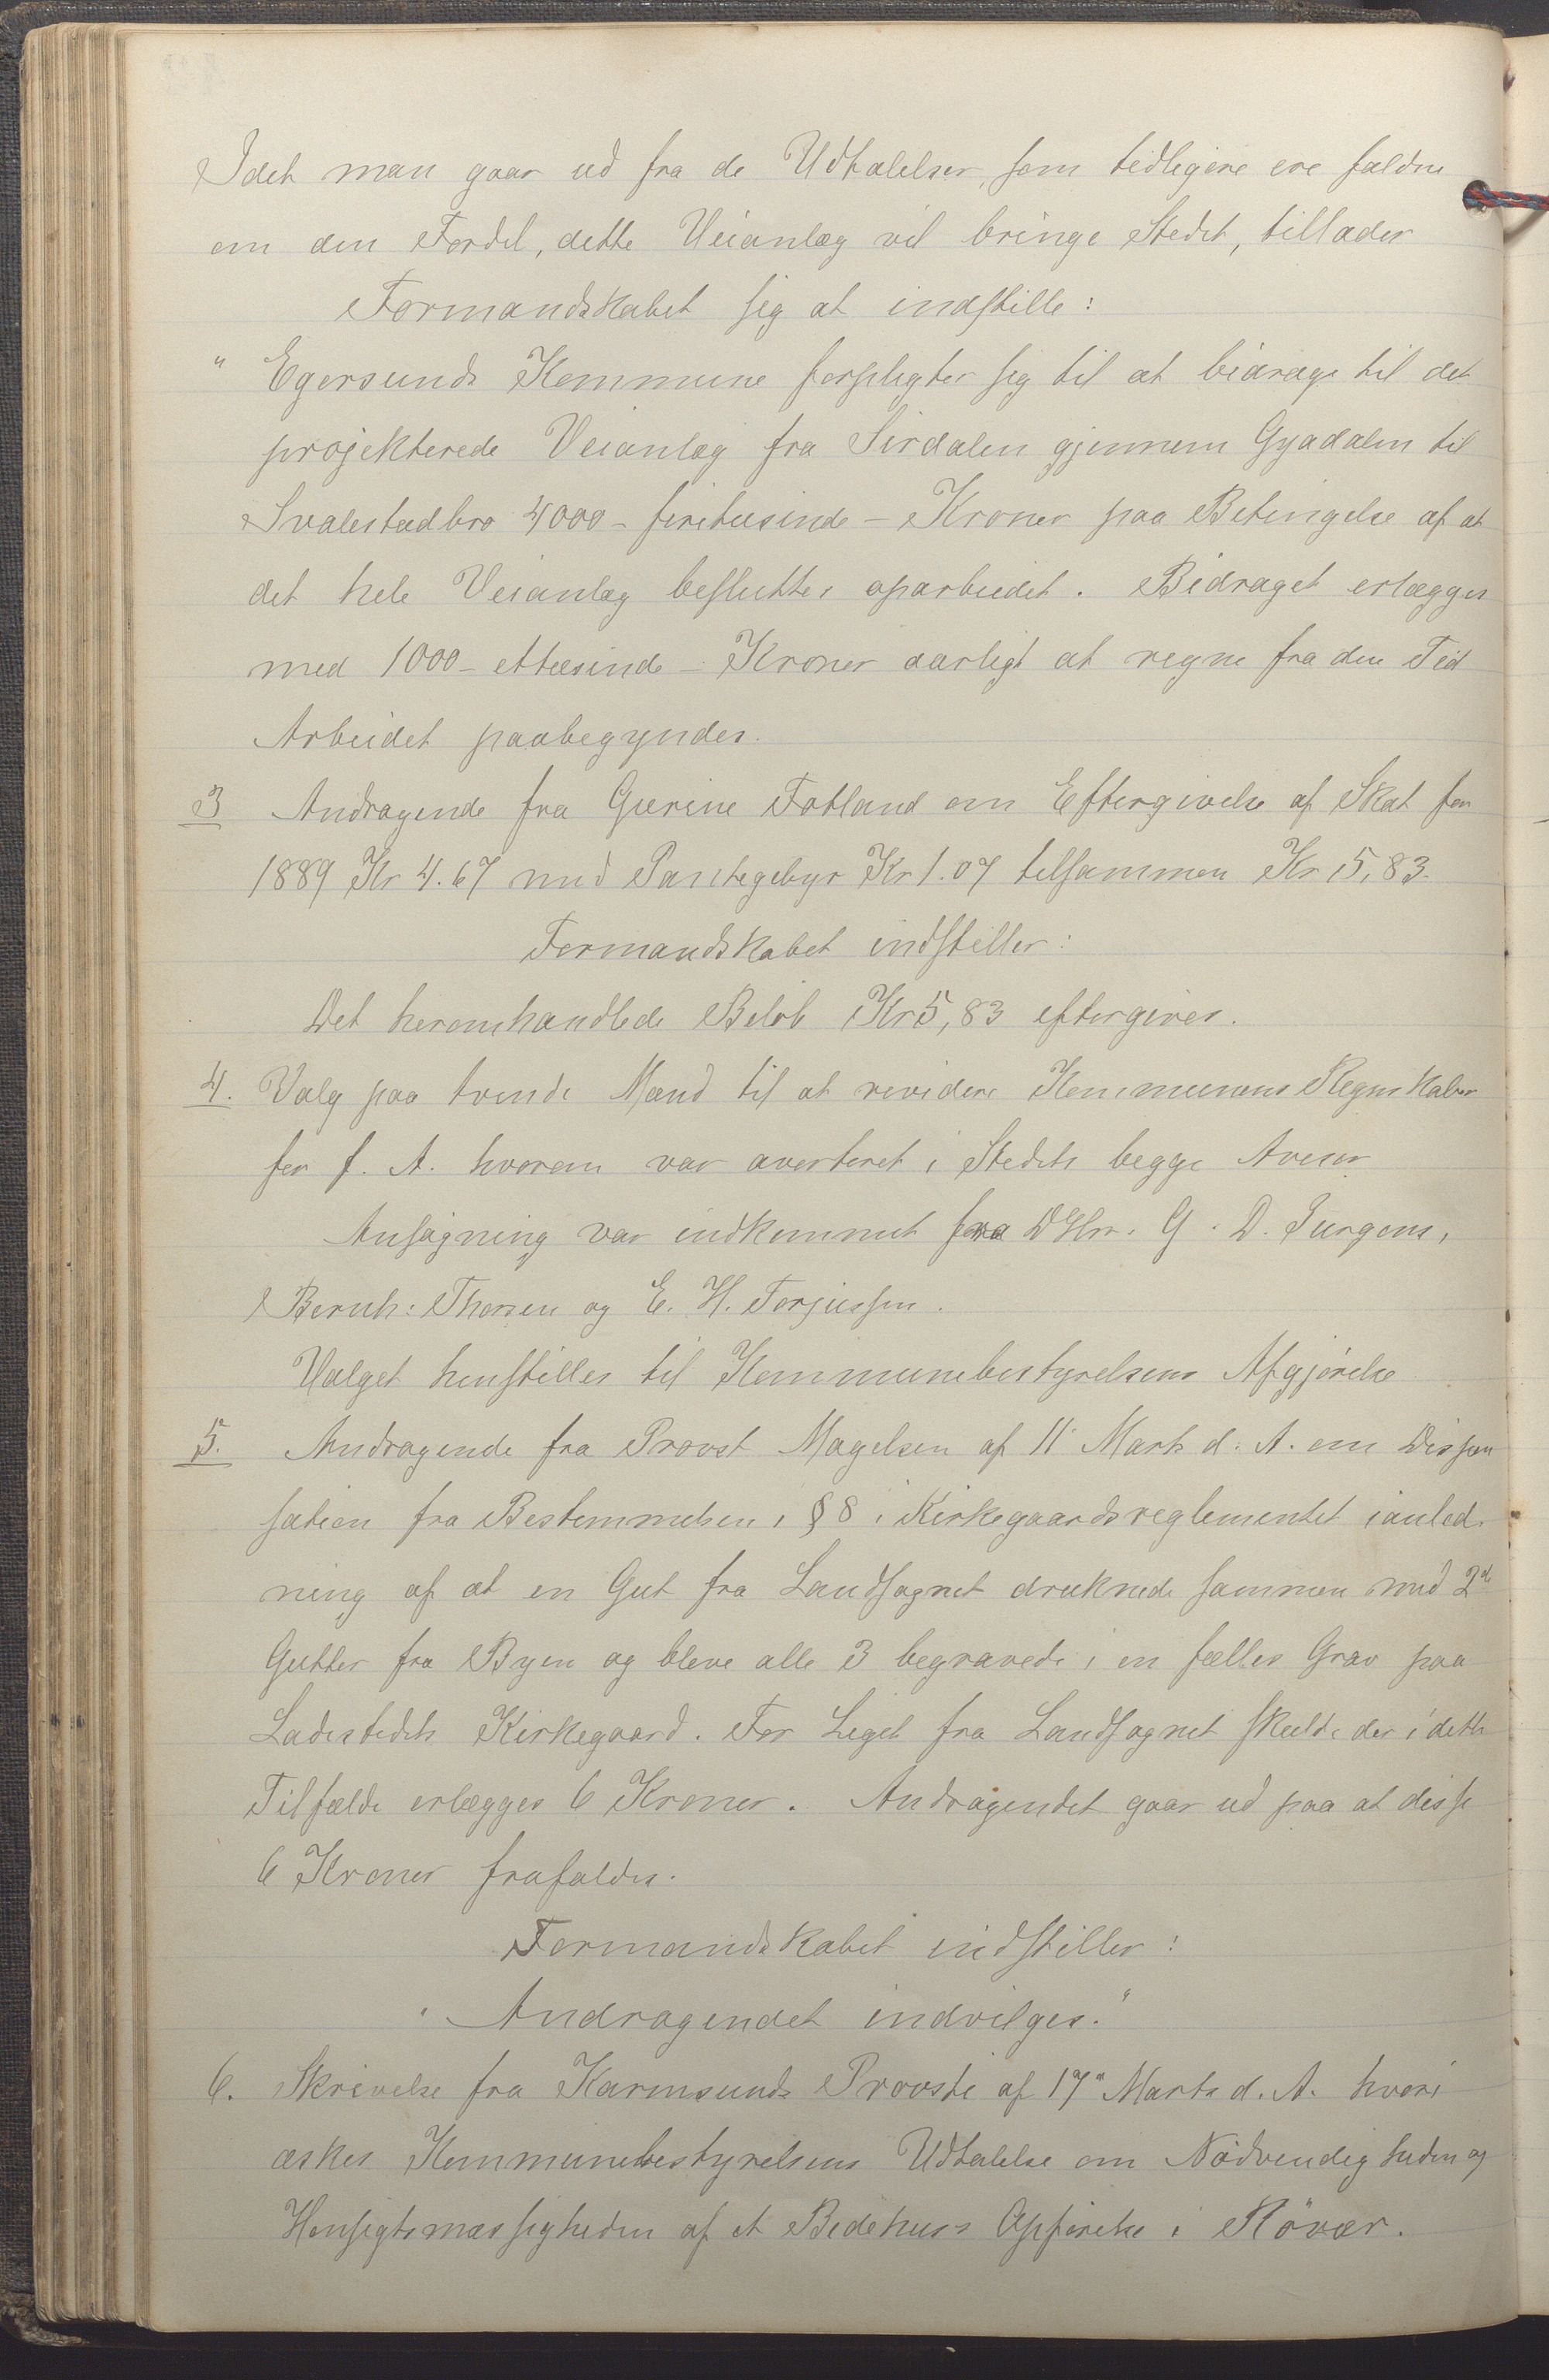 Idet man gaar ud fra de Udtalelser, som tidligere ere faldne
om den Fordel, dette Veianlæg vil bringe Stedet, tillader
Formandskabet sig at indstille:
" Egersunds Kommune forpligter sig til at bidrage til det
projekterede Veianlæg fra Sirdalen gjennem Gyadalen til
Svalestadbro 4000 - firetusinde - Kroner paa Betingelse af at
det hele Veianlæg besluttes oparbeidet. Bidraget erlægges
med 1000 - ettusinde - Kroner aarligt at regne fra den Tid
Arbeidet paabegyndes.
3 Andragende fra Gurine Fotland om Eftergivelse af Skat for
1889 Kr 4.67 med Pantegebyr Kr 1.07 tilsammen Kr 5,83.
Formandskabet indstiller:
Det heromhandlede Beløb Kr 5,83 eftergives.
4. Valg paa tvende Mænd til at revidere Kommunens Regnskaber
for f. A. hvorom var averteret i Stedets begge Aviser
Ansøgning var indkommet fra DHrr. G. D. Jurgens,
Bernh: Thorsen og E. H. Torjussen.
Valget henstilles til Kommunebestyrelsens Afgjørelse
5. Andragende fra Provst Magelsen af 11' Marts d. A. om Dispen
sation fra Bestemmelsen i § 8 i Kirkegaardsreglementet ianled-
ning af at en Gut fra Landsognet druknede sammen med 2de
Gutter fra Byen og bleve alle 3 begravede i en fælles Grav paa
Ladestedets Kirkegaard. For Liget fra Landsognet skulde der i dette
Tilfælde erlægges 6 Kroner. Andragendet gaar ud paa at disse
6 Kroner frafaldes.
Formandskabet indstiller:
" Andragendet indvilges."
6. Skrivelse fra Karmsunds Provsti af 17' Marts d. A. hvori
æskes Kommunebestyrelsens Udtalelse om Nødvendigheden og
Hensigtsmæssigheden af et Bedehus's Opførelse i Røvær.